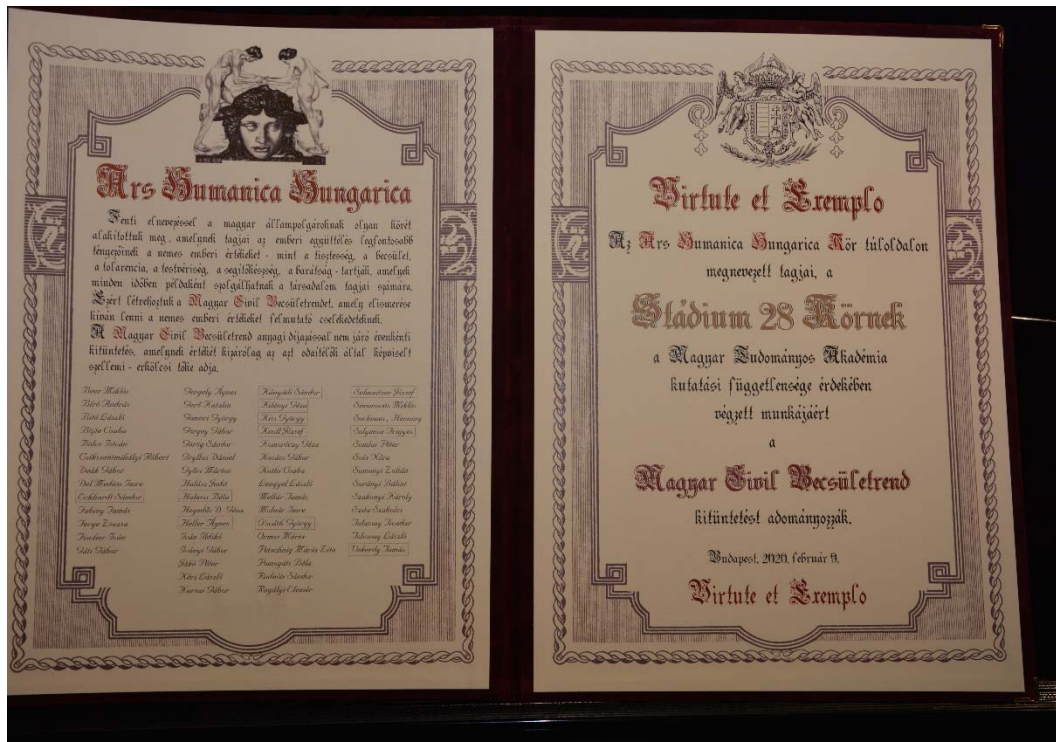 Ars Humanica Hungarica
Fenti elnevezéssel a magyar állampolgároknak olyan körét
alakítottuk meg, amelynek tagjai az emberi együttélés legfontosabb
tényezőinek a nemes emberi értékeket - mint a tisztesség, a becsület,
a tolerancia, a testvériség, a segítőkészség, a barátság - tartják, amelyek
minden időben példaként szolgálhatnak a társadalom tagjai számára.
Ezért létrehoztuk a Magyar Civil Becsületrendet, amely elismerése
kíván lenni a nemes emberi értékeket felmutató cselekedeteknek.
A Magyar Civil Becsületrend anyagi díjazással nem járó évenkénti
kitüntetés, amelynek értékét kizárólag az azt odaítélők által képviselt
szellemi - erkölcsi tőke adja.
Beer Miklós
Bíró András
Bitó László
Böjte Csaba
Csíkszentmihályi Róbert
Deák Gábor
Dol Medico Imre
Eckhardt Sándor
Fabiny Tamás
Ferge Zsuzsa
Fischer Iván
Gáti Gábor
Gergely Ágnes
Gerő Katalin
Görgey Gábor
Gryllus Dániel
Győri Márton
Halász Judit
Hatvani Béla
Heller Ágnes
Iván Ildikó
Iványi Gábor
Jákó Péter
Kéri László
Karnai Gábor
Kányádi Sándor
Kiss György
Knoll József
Komoróczy Géza
Kovács Gábor
Lengyel László
Mellár Tamás
Molnár Imre
Orma Mária
Radnóti Sándor
Ragályi Elemér
Schweitzer József
Simonovits Miklós
Solymosi Frigyes
Somlai Péter
Soós Nóra
Somonyi Zoltán
Surányi Bálint
Szakonyi Károly
Tolcsvay László
Ungvárlay Tamás
Virtute et Exemplo
Az Ars Humanica Hungarica Kör túloldalon
megnevezett tagjai, a
Stádium 28 Körnek
a Magyar Tudományos Akadémia
kutatási függetlensége érdekében
végzett munkájáért
a
Magyar Civil Becsületrend
kitüntetést adományozzák.
Budapest, 2020. február 9.
Virtute et Exemplo